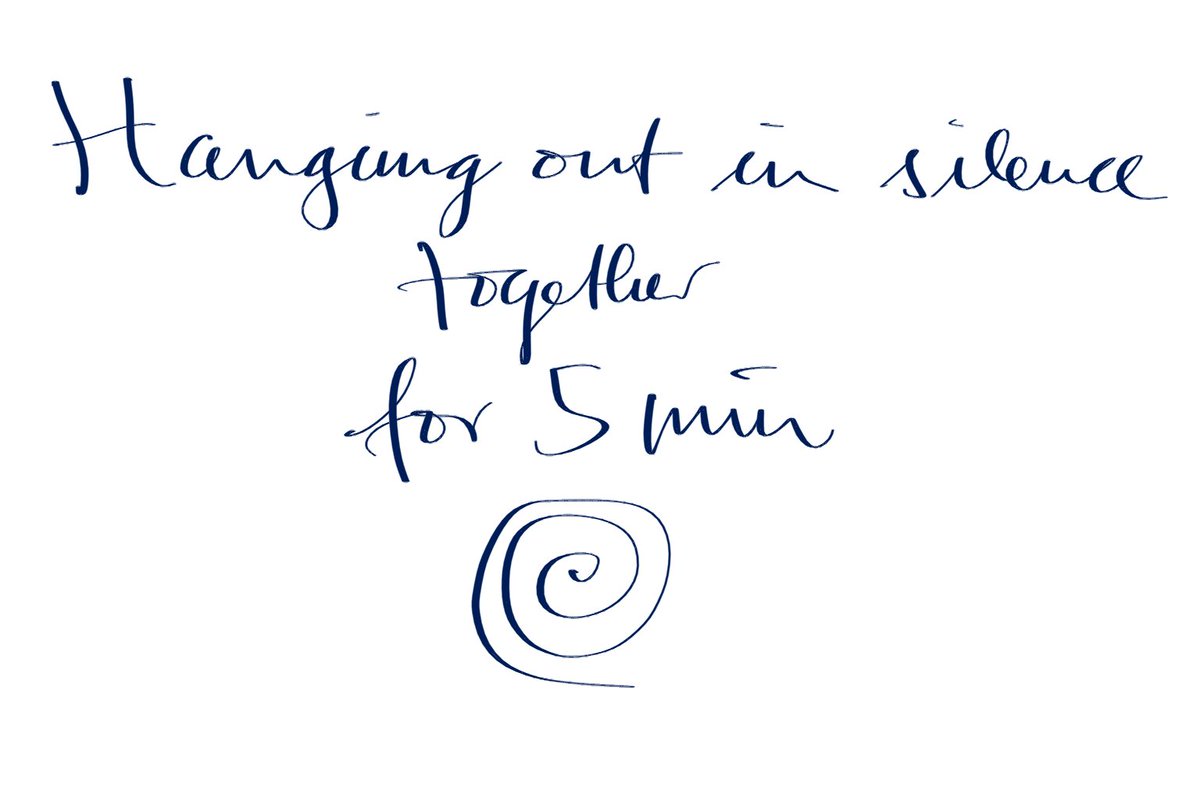 Hanging out in silence
together
for 5 min